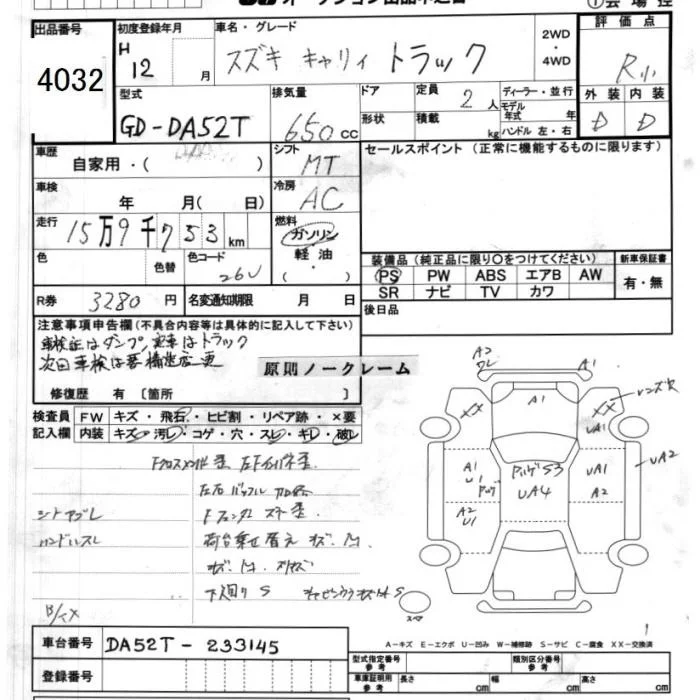 出品番号
4032
初度登録年月
H 12 月
車名・グレード
スズキ キャリィ トラック
2WD
・
4WD
評価点
R小
外装 内装
D D
型式
GD-DA52T
排気量
650 cc
ドア
形状
定員 2 人
積載 kg
ディーラー・並行
モデル年式 年
ハンドル 左・右
車歴
自家用・( )
シフト
MT
セールスポイント(正常に機能するものに限ります)
車検
年 月( 日)
冷房
AC
走行
15万9千753 km
燃料
ガソリン
軽油
( ・ )
色
色替
色コード
26U
装備品(純正品に限り○をつけてください)
PS PW ABS エアB AW
SR ナビ TV カワ
新車保証書
有・無
R券 3280 円
名変通知期限 月 日
後日品
注意事項申告欄(不具合内容等は具体的に記入して下さい)
車検証はダンプ、実車はトラック
次回車検は要構造変更
原則ノークレーム
修復歴 有〔箇所 〕
検査員 FW キズ・飛石・ヒビ割・リペア跡・×要
記入欄 内装 キズ・汚れ・コゲ・穴・スレ・キレ・破れ
シートヤブレ
ハンドルスレ
荷台乗せ替え
下回りS
A2
ワレ
A1
A1
XX
XX
A1
U1
S3
UA4
UA1
A2
UA2
A2
U1
スペア
車台番号 DA52T-233145
登録番号
A-キズ E-エクボ U-凹み W-補修跡 S-サビ C-腐食 XX-交換済
型式指定番号
参考
類別区分番号
参考
車庫証明用
参考
長さ cm 幅 cm 高さ cm